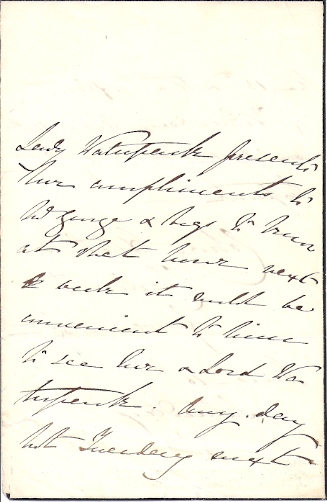 Lady Waterpark presents
her compliments to
Mr George & begs to know
at what hour next
week it will be
convenient to him
to see her & Lord Wa-
terpark. Any day
but Tuesday next